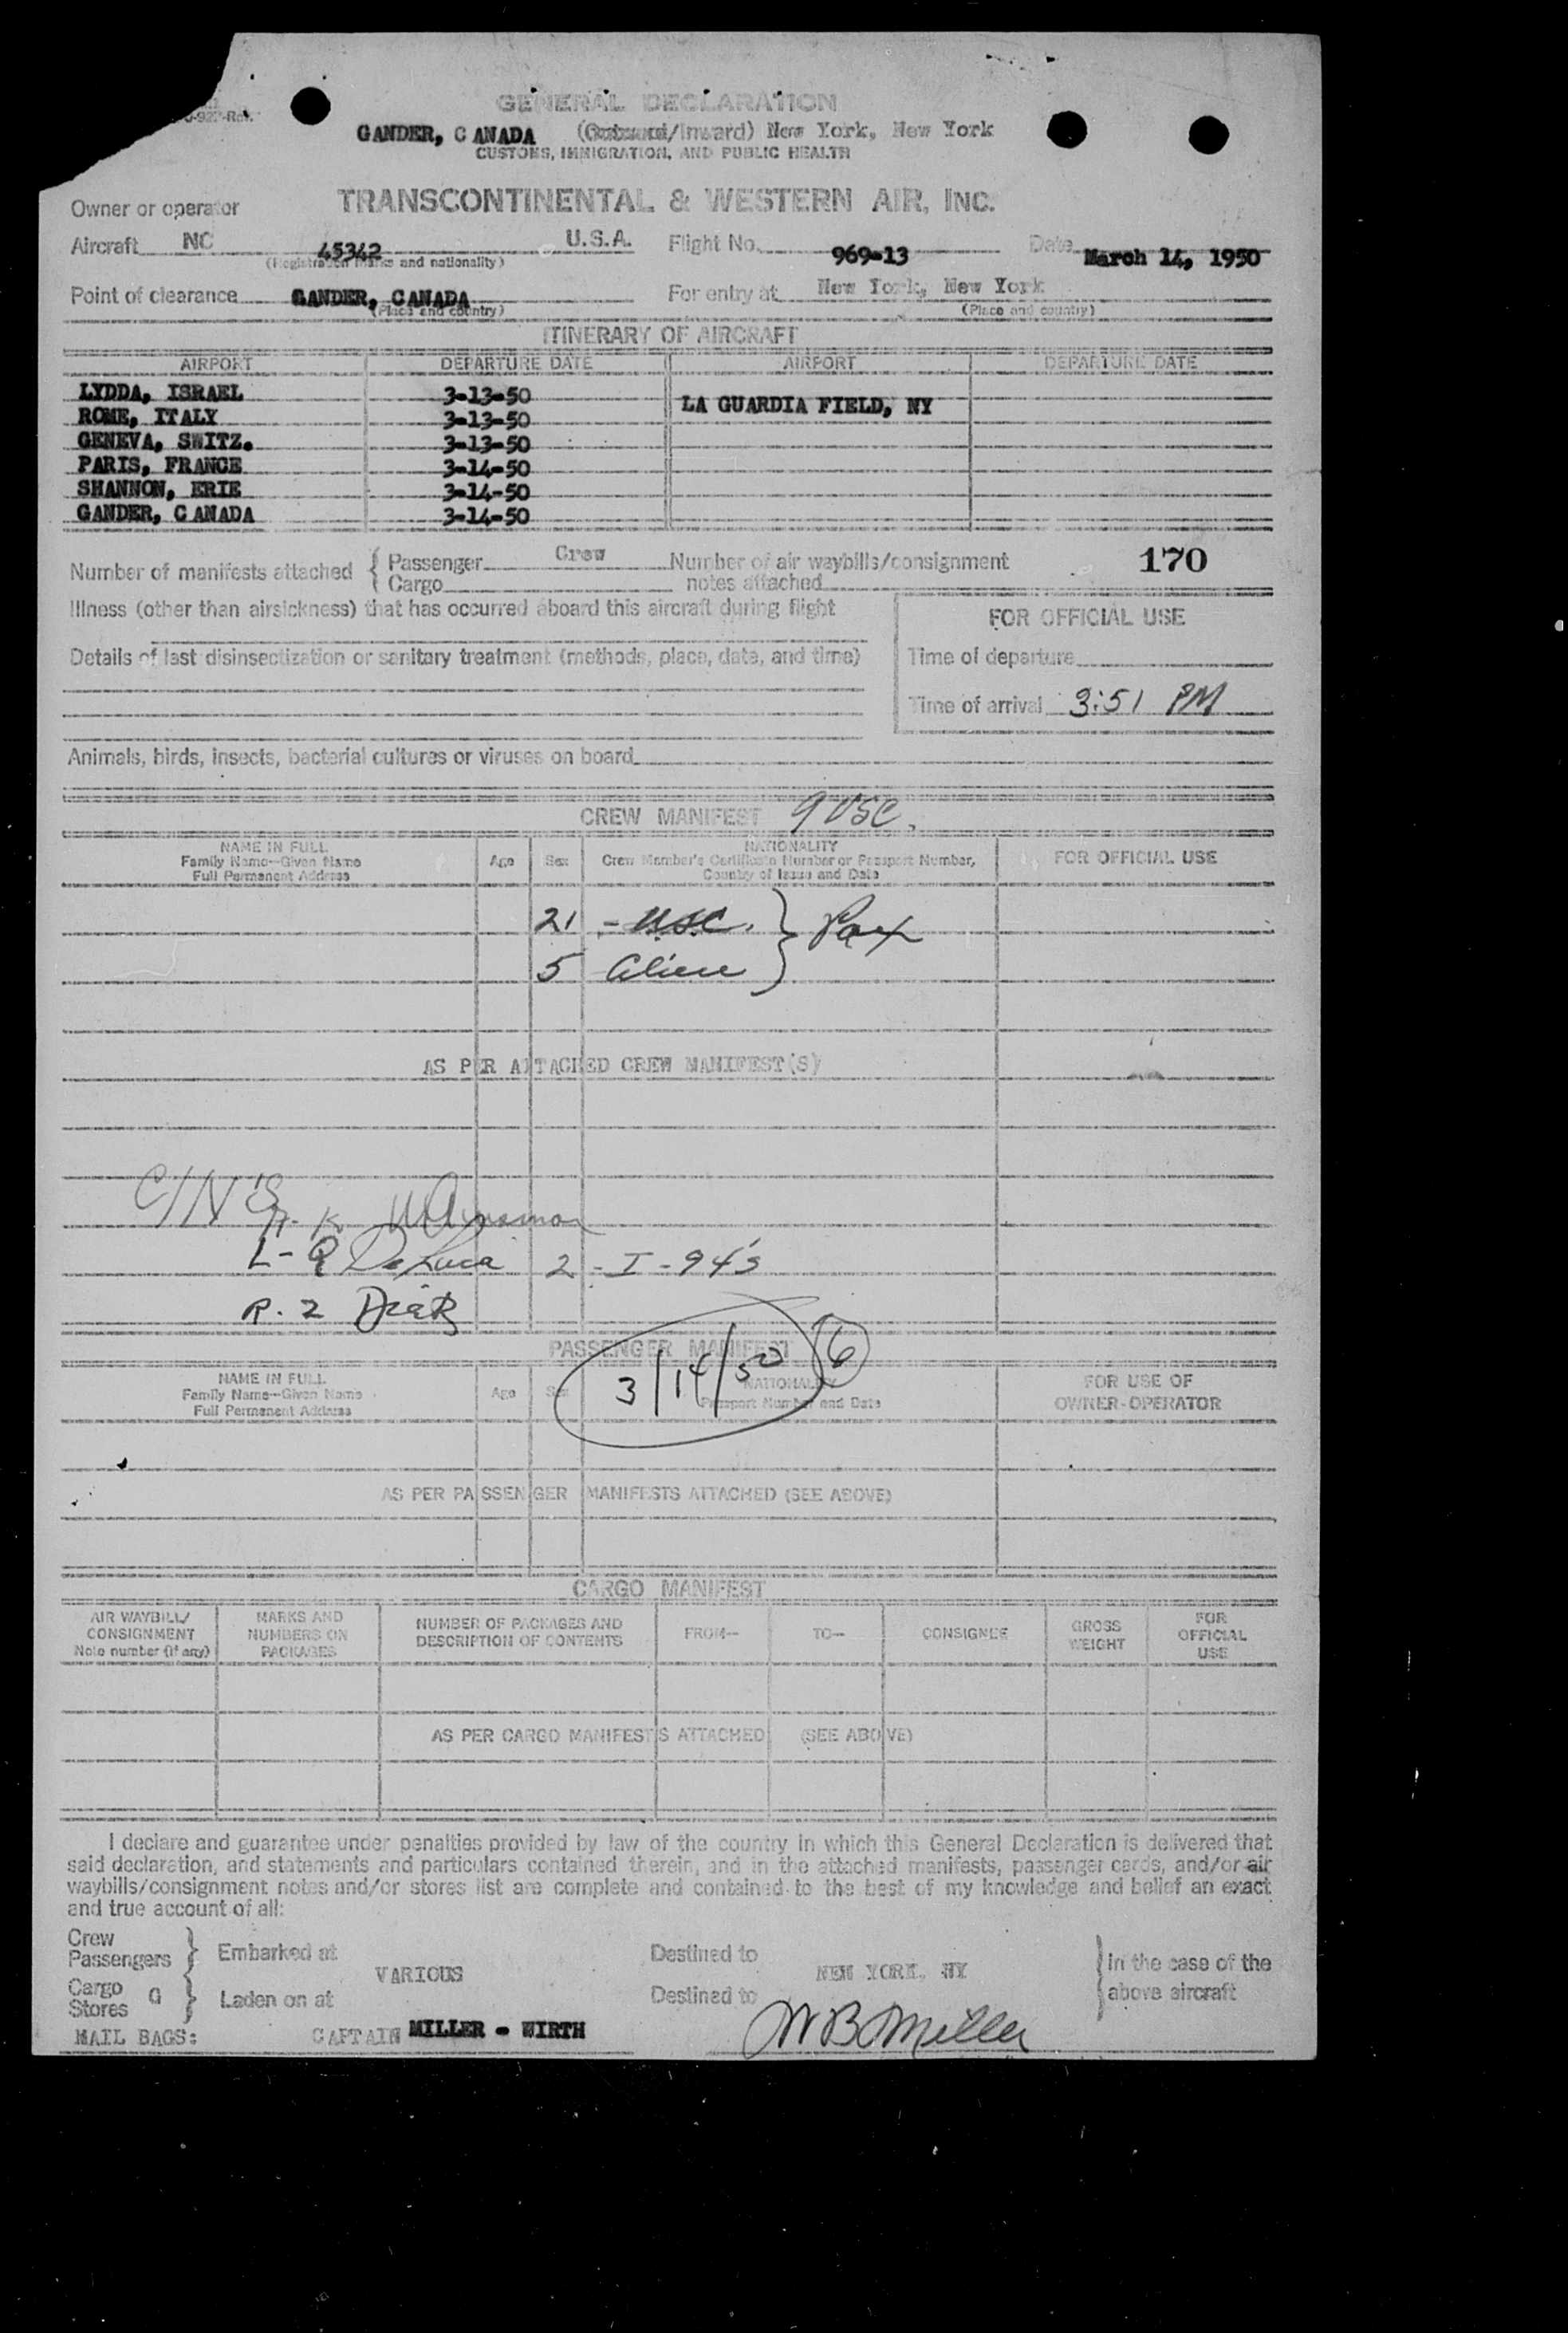 -92?-Rev.
GENERAL DECLARATION
GANDER, CANADA (Outward/Inward) New York, New York
CUSTOMS, IMMIGRATION, AND PUBLIC HEALTH
Owner or operator TRANSCONTINENTAL & WESTERN AIR, INC.
Aircraft NC 45342 U.S.A. Flight No. 969-13 Date March 14, 1950
(Registration marks and nationality)
Point of clearance GANDER, CANADA For entry at New York, New York
(Place and country) (Place and country)
ITINERARY OF AIRCRAFT
AIRPORT DEPARTURE DATE AIRPORT DEPARTURE DATE
LYDDA, ISRAEL 3-13-50
LA GUARDIA FIELD, NY
ROME, ITALY 3-13-50
GENEVA, SWITZ. 3-13-50
PARIS, FRANCE 3-14-50
SHANNON, ERIE 3-14-50
GANDER, CANADA 3-14-50
Number of manifests attached { Passenger Crew Number of air waybills/consignment 170
Cargo notes attached
Illness (other than airsickness) that has occurred aboard this aircraft during flight
FOR OFFICIAL USE
Details of last disinsectization or sanitary treatment (methods, place, date, and time)
Time of departure
Time of arrival 3:51 PM
Animals, birds, insects, bacterial cultures or viruses on board
CREW MANIFEST 9 USC.
NAME IN FULL Family Name--Given Name Full Permanent Address
Age
Sex
NATIONALITY Crew Member's Certificate Number or Passport Number, Country of Issue and Date
FOR OFFICIAL USE
21 - USC. } Pax
5 Alien
AS PER ATTACHED CREW MANIFEST(S)
L-Q DeLuca 2 - I - 94's
R. 2 Diaz
PASSENGER MANIFEST 6
3/14/50
NAME IN FULL Family Name--Given Name Full Permanent Address
Age
Sex
NATIONALITY Passport Number and Date
FOR USE OF OWNER-OPERATOR
AS PER PASSENGER MANIFESTS ATTACHED (SEE ABOVE)
CARGO MANIFEST
AIR WAYBILL/ CONSIGNMENT Note number (if any)
MARKS AND NUMBERS ON PACKAGES
NUMBER OF PACKAGES AND DESCRIPTION OF CONTENTS
FROM--
TO--
CONSIGNEE
GROSS WEIGHT
FOR OFFICIAL USE
AS PER CARGO MANIFESTS ATTACHED (SEE ABOVE)
I declare and guarantee under penalties provided by law of the country in which this General Declaration is delivered that
said declaration, and statements and particulars contained therein, and in the attached manifests, passenger cards, and/or air
waybills/consignment notes and/or stores list are complete and contained to the best of my knowledge and belief an exact
and true account of all:
Crew
Passengers } Embarked at Destined to
VARIOUS NEW YORK, NY
Cargo
Stores } Laden on at Destined to
In the case of the
above aircraft
MAIL BAGS: CAPTAIN MILLER - WIRTH W B Miller